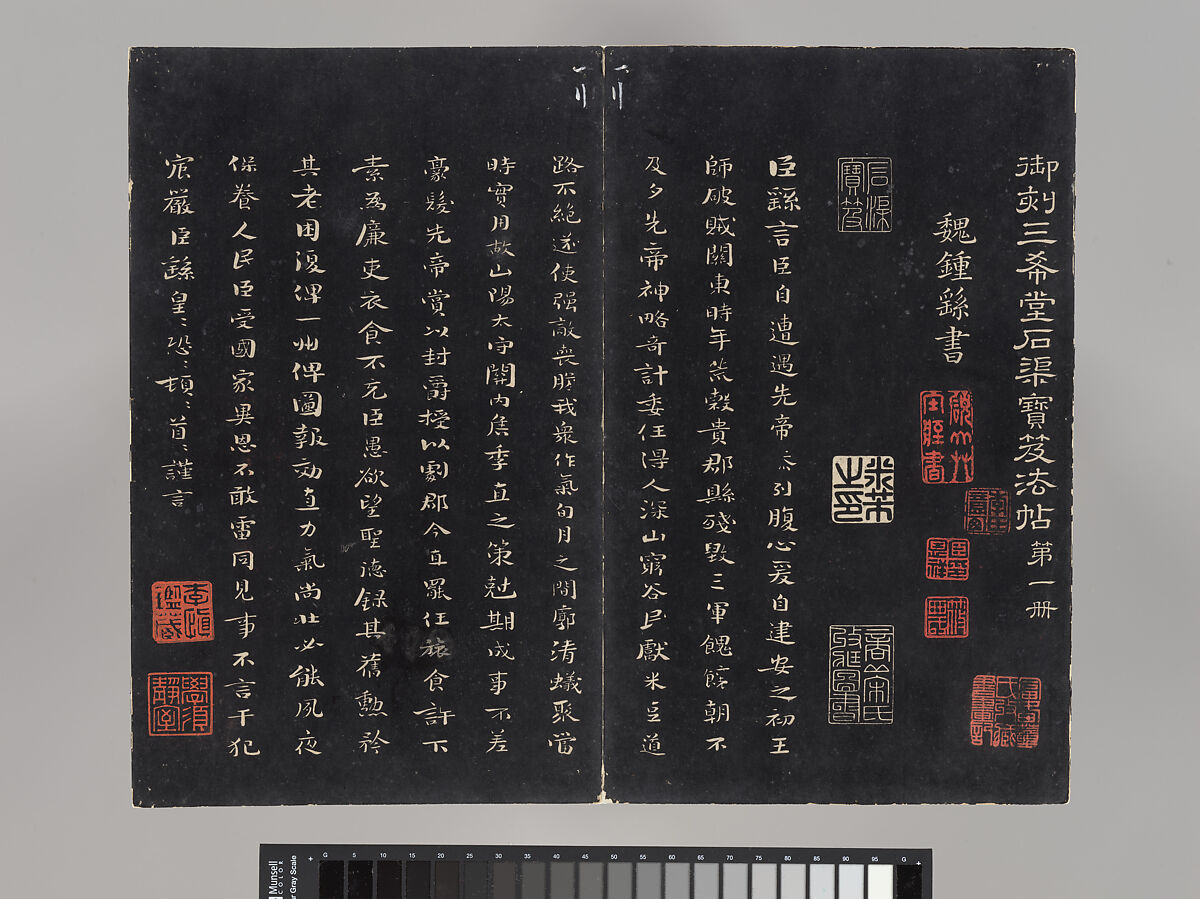 御刻三希堂石渠寶笈法帖第一册
魏鍾繇書
石渠寶笈
臣繇言臣自遭遇先帝忝列腹心爰自建安之初王
師破賊關東時年荒糓貴郡縣殘毀三軍餽饟朝不
及夕先帝神略奇計委任得人深山窮谷民獻米豆道
路不絶遂使强敵喪膽我衆作氣旬月之間廓清蟻聚當
時實用故山陽太守關內侯季直之策尅期成事不差
豪髮先帝賞以封爵授以劇郡今直罷任旅食許下
素爲廉吏衣食不充臣愚欲望聖德錄其舊勳矜
其老困復俾一州俾圖報効直力氣尚壯必能夙夜
保養人民臣受國家異恩不敢雷同見事不言干犯
宸嚴臣繇皇〻恐〻頓〻首〻謹言
一刂
一刂
Munsell
COLOR
Gray Scale
G 5 10 15 20 25 30 35 40 45 50 55 60 65 70 75 80 85 90 95 G